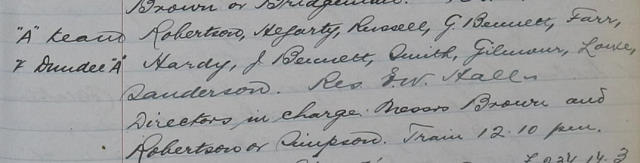 Brown or Bridgeman.
"A" team Robertson, Hegarty, Russell, G. Bennett, Farr,
v Dundee "A" Hardy, J Bennett, Smith, Gilmour, Lowe,
Sanderson. Res. E.W. Hall
Directors in charge. Messrs Brown and
Robertson or Simpson. Train 12.10 pm.